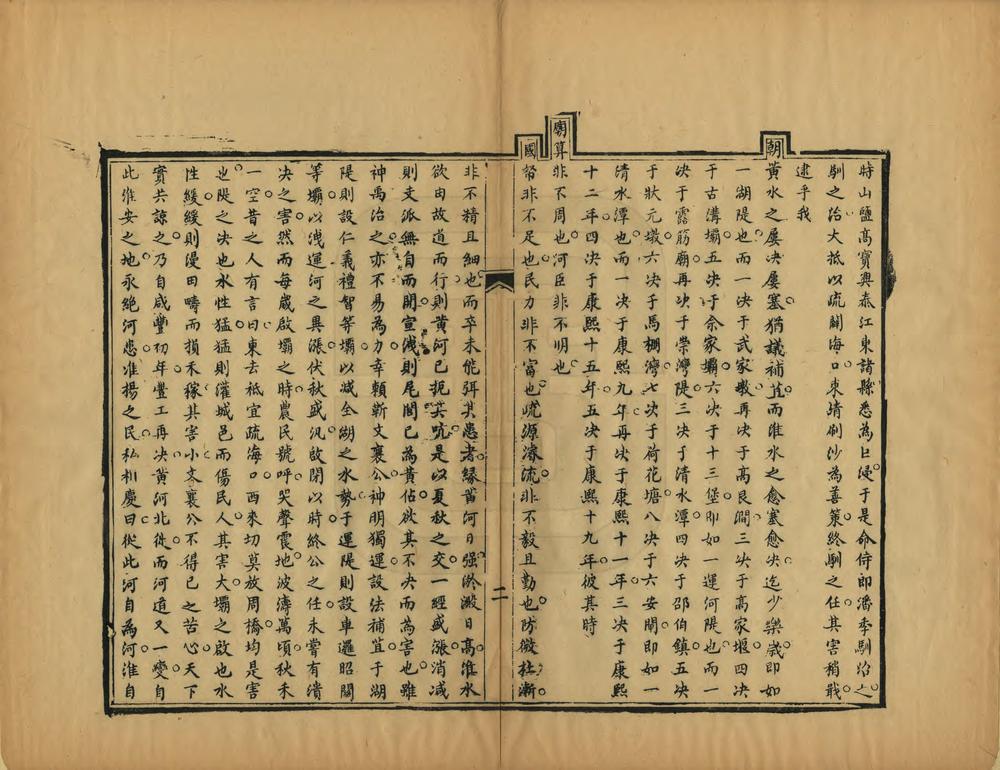 時山鹽高寶興泰江東諸縣悉為上浸于是命侍郎潘季馴治之
馴之治大抵以疏闢海口東清刷沙為善策終馴之任其害稍戢
逮乎我
朝黃水之屢决屢塞猶議補苴而淮水之愈塞愈决迄少樂歲即如
一湖隄也而一决于武家墩再决于高良澗三决于高家堰四决
于古溝壩五决于佘家壩六决于十三堡即如一運河隄也而一
决于露筋廟再决于崇灣隄三决于清水潭四决于邵伯鎮五决
于狀元墩六决于馬棚灣七决于荷花塘八决于六安閘即如一
清水潭也而一决于康熙九年再决于康熙十一年三决于康熙
十二年四决于康熙十五年五决于康熙十九年彼其時
廟算非不周也河臣非不明也
國帑非不足也民力非不富也疏源濬流非不毅且勤也防微杜漸
二
非不精且細也而卒未能弭其患者緣黃河日强淤澱日高淮水
欲由故道而行則黃河已扼其吭是以夏秋之交一經盛漲消減
則支派無自而開宣洩則尾閭已為黃佔欲其不决而為害也雖
神禹治之亦不易為力幸賴靳文襄公神明獨運設法補苴于湖
隄則設仁義禮智等壩以減全湖之水勢于運隄則設車邏昭關
等壩以洩運河之異漲伏秋盛汛啟閉以時終公之任未嘗有潰
决之害然而每歲啟壩之時農民號呼哭聲震地波濤萬頃秋禾
一空昔之人有言曰東去祗宜疏海口西來切莫放周橋均是害
也隄之决也水性猛猛則灌城邑而傷民人其害大壩之啟也水
性緩緩則漫田疇而損禾稼其害小文襄公不得已之苦心天下
實共諒之乃自咸豐初年豐工再决黃河北徙而河道又一變自
此淮安之地永絕河患淮揚之民私相慶曰從此河自為河淮自